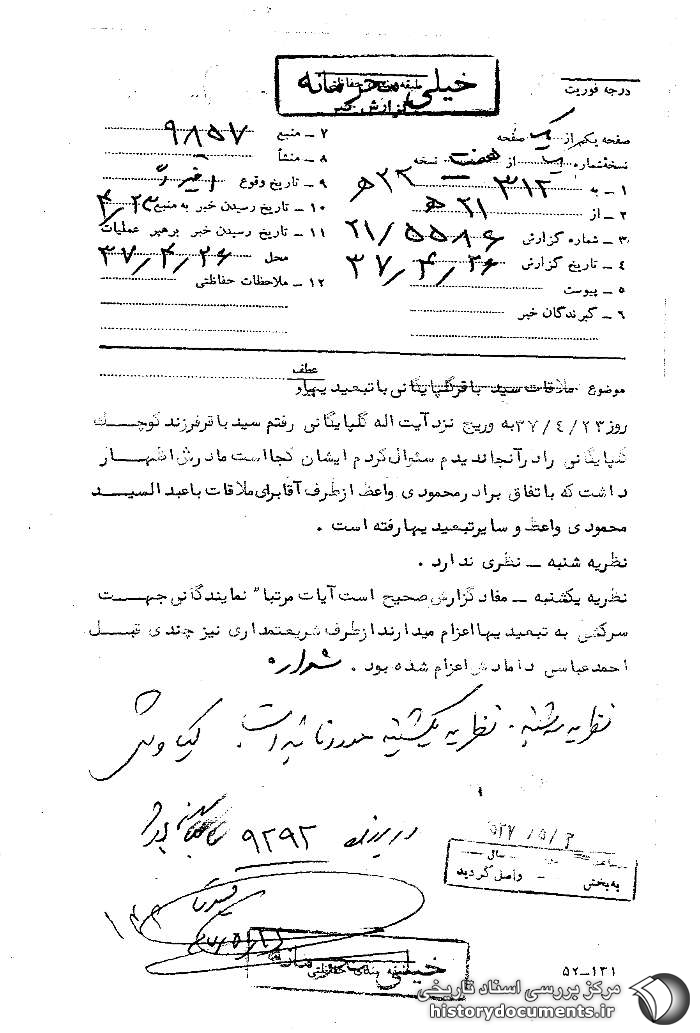 خیلی محرمانه
گزارش خبر
درجه فوریت
صفحه یکم از یک صفحه
نسخه شماره از هفت نسخه
۱ ـ به ۳۱۲ ۲۲ ه
۲ ـ از ۲۱ ه
۳ ـ شماره گزارش ۲۱/۵۵۸۶
۴ ـ تاریخ گزارش ۳۷/۴/۲۶
۵ ـ پیوست
۶ ـ گیرندگان خبر
۷ ـ منبع ۹۸۵۷
۸ ـ منشأ
۹ ـ تاریخ وقوع اخیراً
۱۰ ـ تاریخ رسیدن خبر به منبع ۴/۲۳
۱۱ ـ تاریخ رسیدن خبر برهبر عملیات
محل ۳۷/۴/۲۶
۱۲ ـ ملاحظات حفاظتی
عطف
موضوع ملاقات سید باقر گلپایگانی با تبعیدیها و
روز ۳۷/۴/۲۳ به وریج نزد آیت اله گلپایگانی رفتم سید باقر فرزند کوچک
گلپایگانی رادرآنجاندیدم سئوال کردم ایشان کجااست مادرش اظهار
داشت که باتفاق برادرمحمودی واعظ ازطرف آقابرای ملاقات باعبدالسید
محمودی واعظ و سایرتبعیدیهارفته است .
نظریه شنبه ـ نظری ندارد .
نظریه یکشنبه ـ مفادگزارش صحیح است آیات مرتباً نمایندگانی جهت
سرکشی به تبعیدیهااعزام میدارندازطرف شریعتمداری نیز چندی قبل
احمدعباسی دامادش اعزام شده بود .
نظریه سه شنبه . نظریه یکشنبه مورد تائید است .
در پرونده ۹۲۹۲
۵۳۷/۵/۳
ساعت سال
به بخش - واصل گردید
۱۳۳
خیلی محرمانه
۵۲ـ۱۳۱
مرکز بررسی اسناد تاریخی
historydocuments.ir